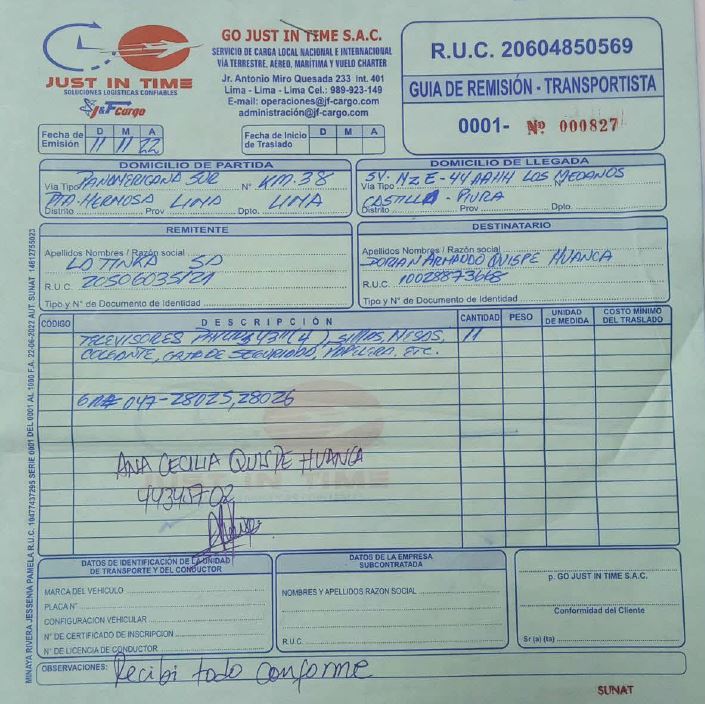 JUST IN TIME
SOLUCIONES LOGISTICAS CONFIABLES
J&F Cargo
GO JUST IN TIME S.A.C.
SERVICIO DE CARGA LOCAL NACIONAL E INTERNACIONAL
VÍA TERRESTRE, AEREO, MARÍTIMA Y VUELO CHARTER
Jr. Antonio Miro Quesada 233 Int. 401
Lima - Lima - Lima Cel.: 989-923-149
E-mail: operaciones@jf-cargo.com
administración@jf-cargo.com
R.U.C. 20604850569
GUIA DE REMISIÓN - TRANSPORTISTA
0001- Nº 000827
Fecha de Emisión D M A
11 11 22
Fecha de Inicio de Traslado D M A
DOMICILIO DE PARTIDA
Vía Tipo PANAMERICANA SUR Nº KM. 38
PTA. HERMOSA LIMA LIMA
Distrito Prov Dpto.
DOMICILIO DE LLEGADA
Vía Tipo MZ E-44 AAHH LOS MEDANOS
CASTILLA - PIURA
Distrito Prov. Dpto.
REMITENTE
Apellidos Nombres / Razón social
LA TINKA SA
R.U.C. 20506035121
Tipo y N° de Documento de Identidad
DESTINATARIO
Apellidos Nombres / Razón social
DORIAN ARMANDO QUISPE HUANCA
R.U.C. 10028873668
Tipo y N° de Documento de Identidad
CÓDIGO DESCRIPCIÓN CANTIDAD PESO UNIDAD DE MEDIDA COSTO MÍNIMO DEL TRASLADO
TELEVISORES 43 , SILLAS, MESAS, 11
COLGANTE, CAJA DE SEGURIDAD, PAPELERA, ETC.
GR# 047-28025, 28026
ANA CECILIA QUISPE HUANCA
DATOS DE IDENTIFICACIÓN DE LA UNIDAD DE TRANSPORTE Y DEL CONDUCTOR
MARCA DEL VEHICULO
PLACA N°
CONFIGURACION VEHICULAR
N° DE CERTIFICADO DE INSCRIPCION
N° DE LICENCIA DE CONDUCTOR
DATOS DE LA EMPRESA SUBCONTRATADA
NOMBRES Y APELLIDOS RAZON SOCIAL
R.U.C.
p. GO JUST IN TIME S.A.C.
Conformidad del Cliente
Sr (a) (ta)
OBSERVACIONES: Recibi todo conforme
SUNAT
MINAYA RIVERA JESSENIA PAMELA R.U.C. 10477437295 SERIE 0001 DEL 0001 AL 1000 F.A. 22-06-2022 AUT. SUNAT 14612755023